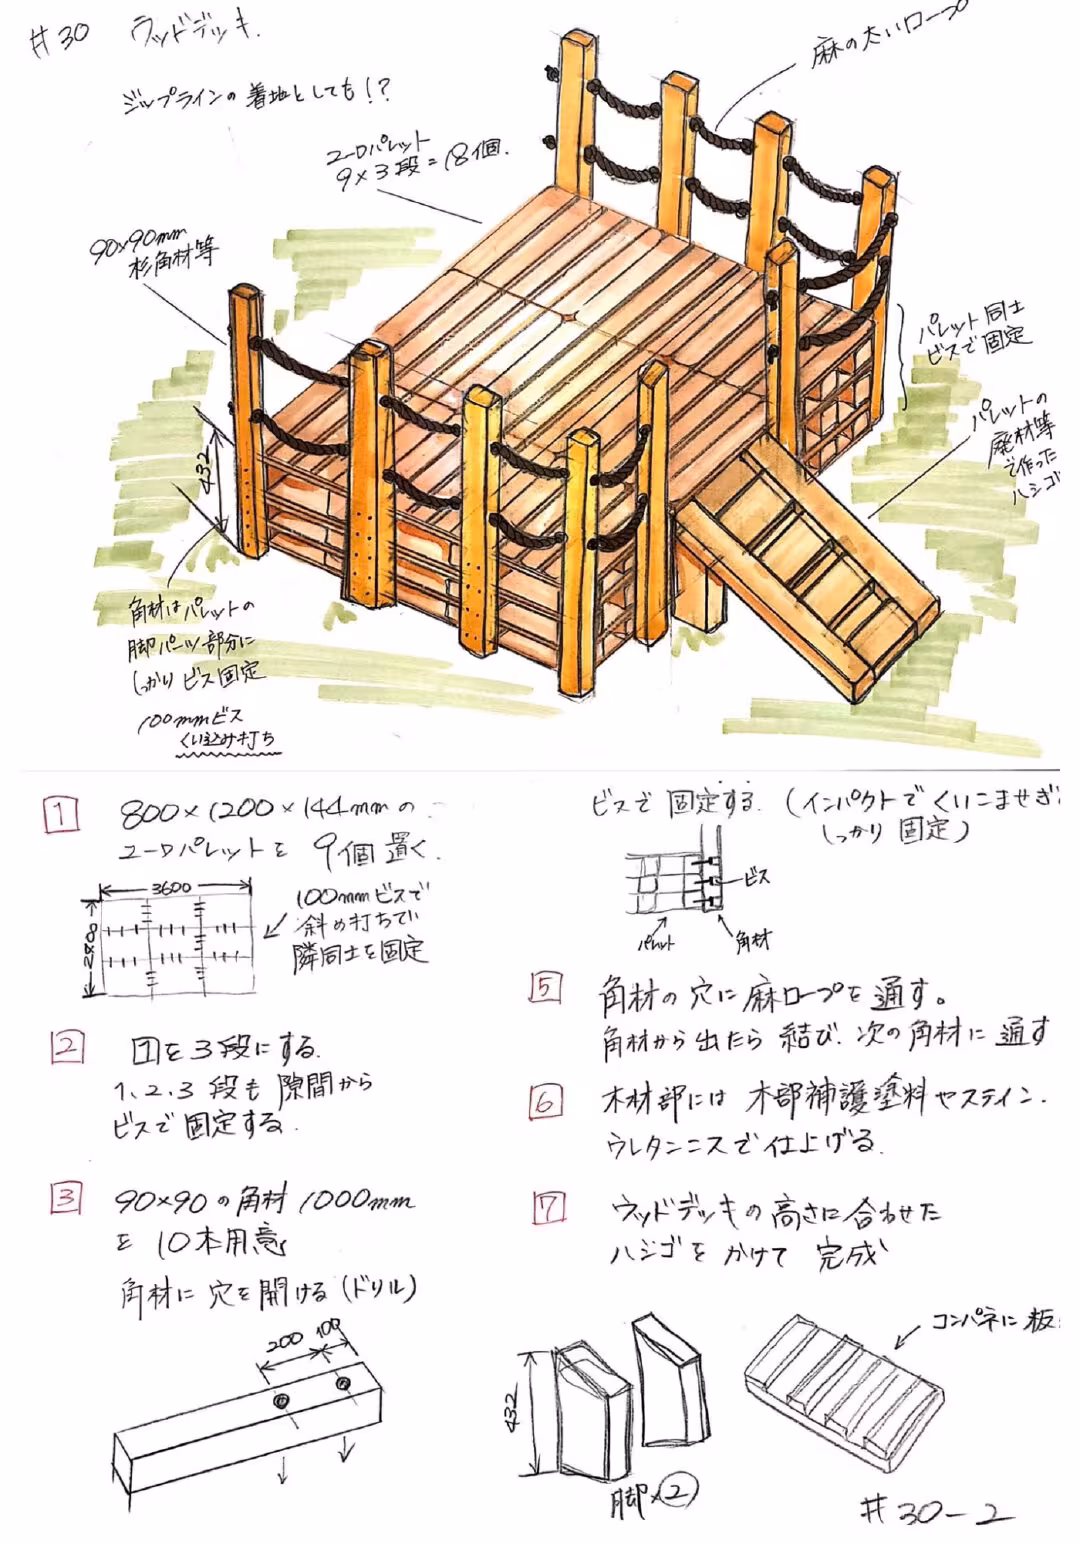 #30 ウッドデッキ.
ジップラインの着地としても!?
麻の太いロープ
ユーロパレット
9×3段=18個.
90×90mm
杉角材等
パレット同士
ビスで固定
パレットの
廃材等
で作った
ハシゴ
432
角材はパレットの
脚パーツ部分に
しっかりビス固定
100mmビス
くい込み打ち
1 800×1200×144mmの
ユーロパレットを9個置く.
3600
2400
100mmビスで
斜め打ちで
隣同士を固定
2 1を3段にする.
1.2.3段も隙間から
ビスで固定する.
3 90×90の角材1000mm
を10本用意
角材に穴を開ける(ドリル)
200 100
ビスで固定する.(インパクトでくいこませぎ
しっかり固定)
ビス
パレット
角材
5 角材の穴に麻ロープを通す。
角材から出たら結び.次の角材に通す
6 木材部には木部補護塗料やステイン.
ウレタンニスで仕上げる.
7 ウッドデッキの高さに合わせた
ハシゴをかけて完成
432
脚×2
コンパネに板
#30-2